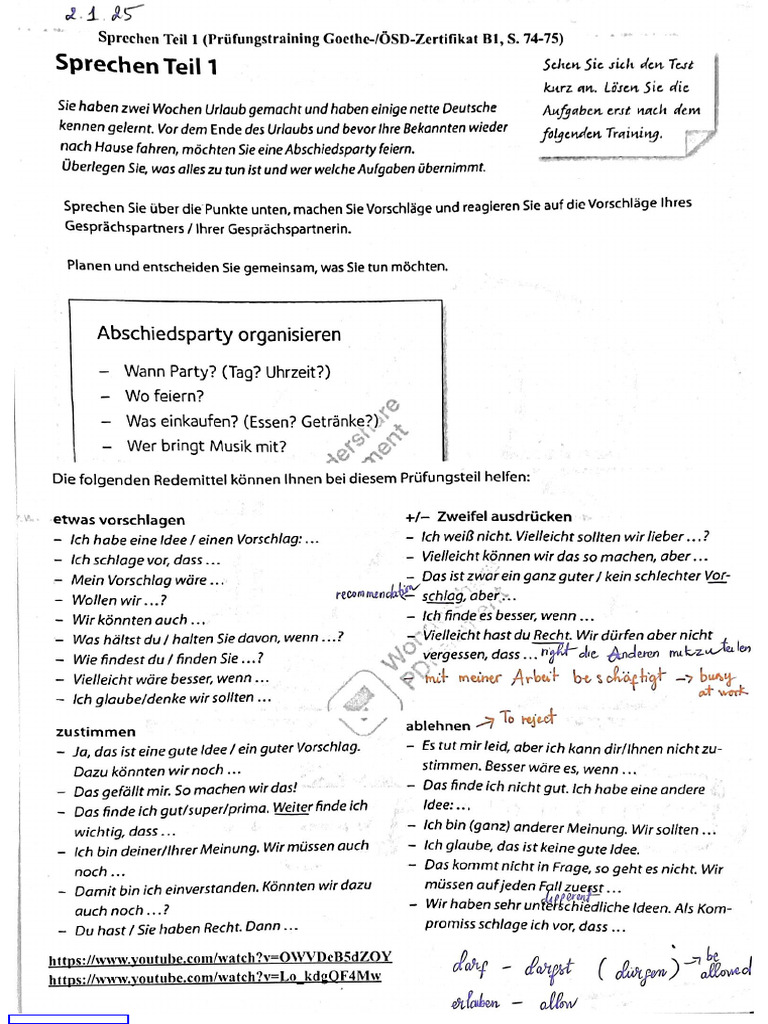 2.1.25
Sprechen Teil 1 (Prüfungstraining Goethe-/ÖSD-Zertifikat B1, S. 74-75)
Sprechen Teil 1
Sehen Sie sich den Test
kurz an. Lösen Sie die
Aufgaben erst nach dem
folgenden Training.
Sie haben zwei Wochen Urlaub gemacht und haben einige nette Deutsche
kennen gelernt. Vor dem Ende des Urlaubs und bevor Ihre Bekannten wieder
nach Hause fahren, möchten Sie eine Abschiedsparty feiern.
Überlegen Sie, was alles zu tun ist und wer welche Aufgaben übernimmt.
Sprechen Sie über die Punkte unten, machen Sie Vorschläge und reagieren Sie auf die Vorschläge Ihres
Gesprächspartners / Ihrer Gesprächspartnerin.
Planen und entscheiden Sie gemeinsam, was Sie tun möchten.
Abschiedsparty organisieren
– Wann Party? (Tag? Uhrzeit?)
– Wo feiern?
– Was einkaufen? (Essen? Getränke?)
– Wer bringt Musik mit?
Die folgenden Redemittel können Ihnen bei diesem Prüfungsteil helfen:
etwas vorschlagen
– Ich habe eine Idee / einen Vorschlag: ...
– Ich schlage vor, dass ...
– Mein Vorschlag wäre ...
– Wollen wir ...?
– Wir könnten auch ...
– Was hältst du / halten Sie davon, wenn ...?
– Wie findest du / finden Sie ...?
– Vielleicht wäre besser, wenn ...
– Ich glaube/denke wir sollten ...
zustimmen
– Ja, das ist eine gute Idee / ein guter Vorschlag.
Dazu könnten wir noch ...
– Das gefällt mir. So machen wir das!
– Das finde ich gut/super/prima. Weiter finde ich
wichtig, dass ...
– Ich bin deiner/Ihrer Meinung. Wir müssen auch
noch ...
– Damit bin ich einverstanden. Könnten wir dazu
auch noch ...?
– Du hast / Sie haben Recht. Dann ...
https://www.youtube.com/watch?v=OWVDeB5dZOY
https://www.youtube.com/watch?v=Lo_kdgQF4Mw
+/– Zweifel ausdrücken
– Ich weiß nicht. Vielleicht sollten wir lieber ...?
– Vielleicht können wir das so machen, aber ...
– Das ist zwar ein ganz guter / kein schlechter Vor-
recommendation schlag, aber ...
– Ich finde es besser, wenn ...
– Vielleicht hast du Recht. Wir dürfen aber nicht
vergessen, dass ... right die Anderen mitzuteilen
– mit meiner Arbeit beschäftigt → busy
at work
ablehnen → To reject
– Es tut mir leid, aber ich kann dir/Ihnen nicht zu-
stimmen. Besser wäre es, wenn ...
– Das finde ich nicht gut. Ich habe eine andere
Idee: ...
– Ich bin (ganz) anderer Meinung. Wir sollten ...
– Ich glaube, das ist keine gute Idee.
– Das kommt nicht in Frage, so geht es nicht. Wir
müssen auf jeden Fall zuerst ...
different
– Wir haben sehr unterschiedliche Ideen. Als Kom-
promiss schlage ich vor, dass ...
darf – darfst (dürfen) → be
allowed
erlauben – allow